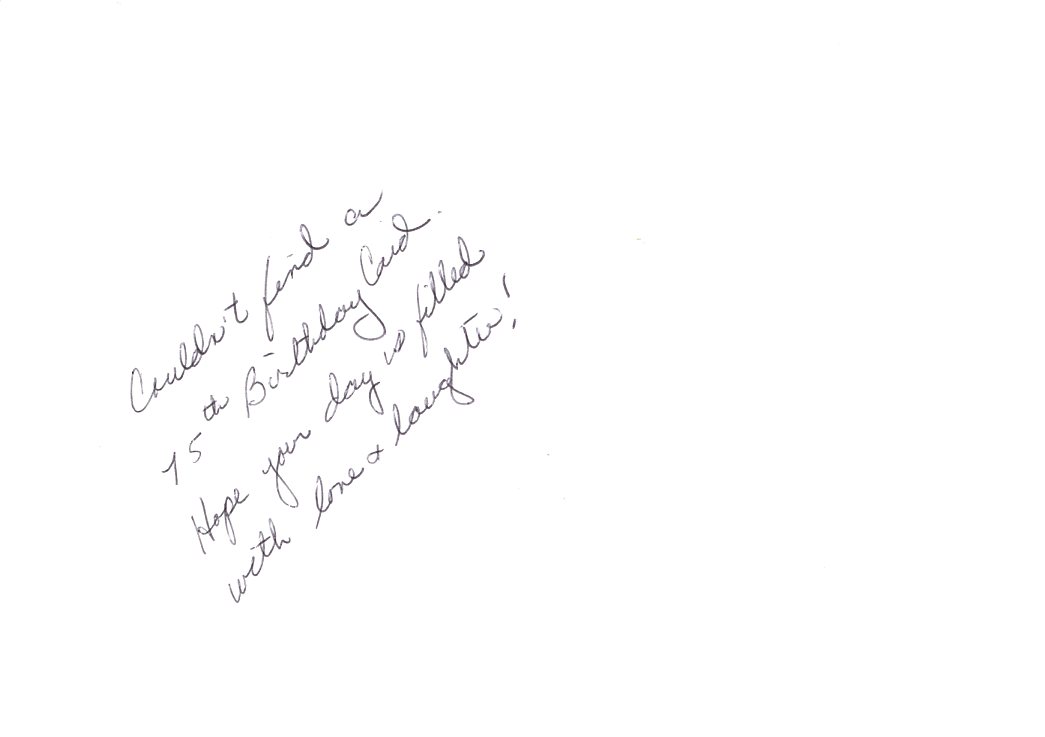 Couldn't find a
75th Birthday Card.
Hope your day is filled
with love & laughter!